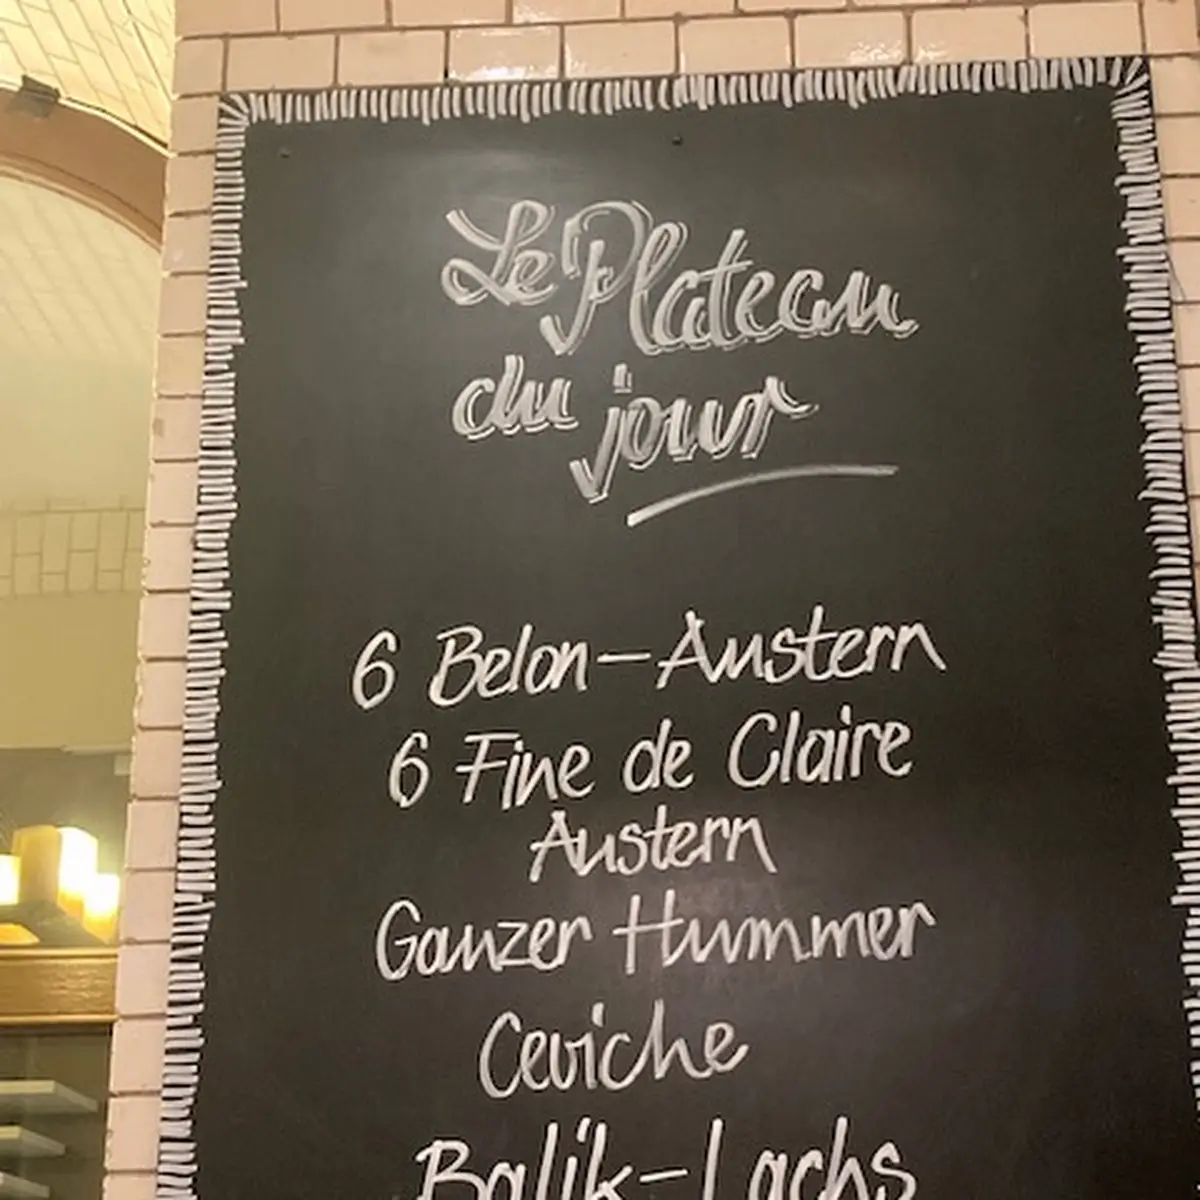 Le Plateau
du jour
6 Belon-Austern
6 Fine de Claire
Austern
Ganzer Hummer
Ceviche
Balik-Lachs